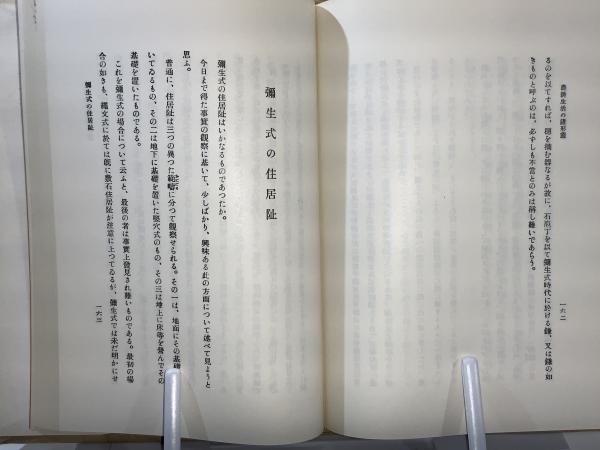 るのを以てすれば、穂を摘む器なるが故に、石庖丁を以て彌生式時代に於ける鎌、又は鎌の如
きものと呼ぶのは、必ずしも不當とのみは稱し難いであらう。
一六二
彌生式の住居阯
彌生式の住居阯はいかなるものであつたか。
今日まで得た事實の觀察に基いて、少しばかり、興味ある此の方面について述べて見ようと
思ふ。
普通に、住居阯は三つの異つた範疇に分つて觀察せられる。その一は、地面にその基礎
いてゐるもの、その二は地下に基礎を置いた竪穴式のもの、その三は地上に床等を營んでその
基礎を置いたものである。
これを彌生式の場合について云ふと、最後の者は事實上發見され難いものである。最初の場
合の如きも、繩文式に於ては既に敷石住居阯が注意に上つてゐるが、彌生式では未だ明かにせ
彌生式の住居阯
一六三